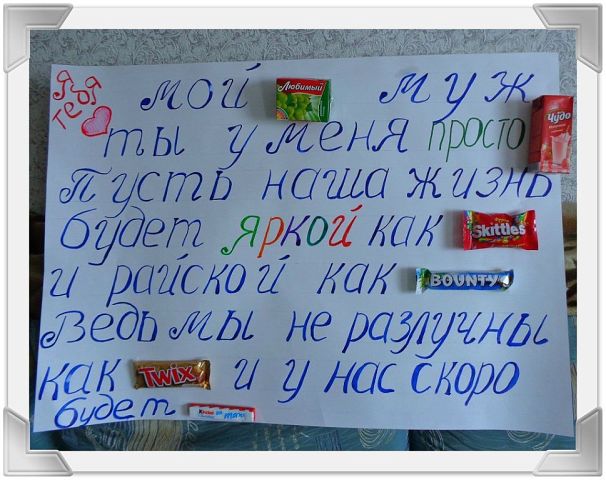 Я
тебя
мой Любимый муж
ты у меня просто Чудо
Пусть наша жизнь
будет яркой как Skittles
и райской как BOUNTY
Ведь мы не разлучны
как TWIX и у нас скоро
будет Kinder